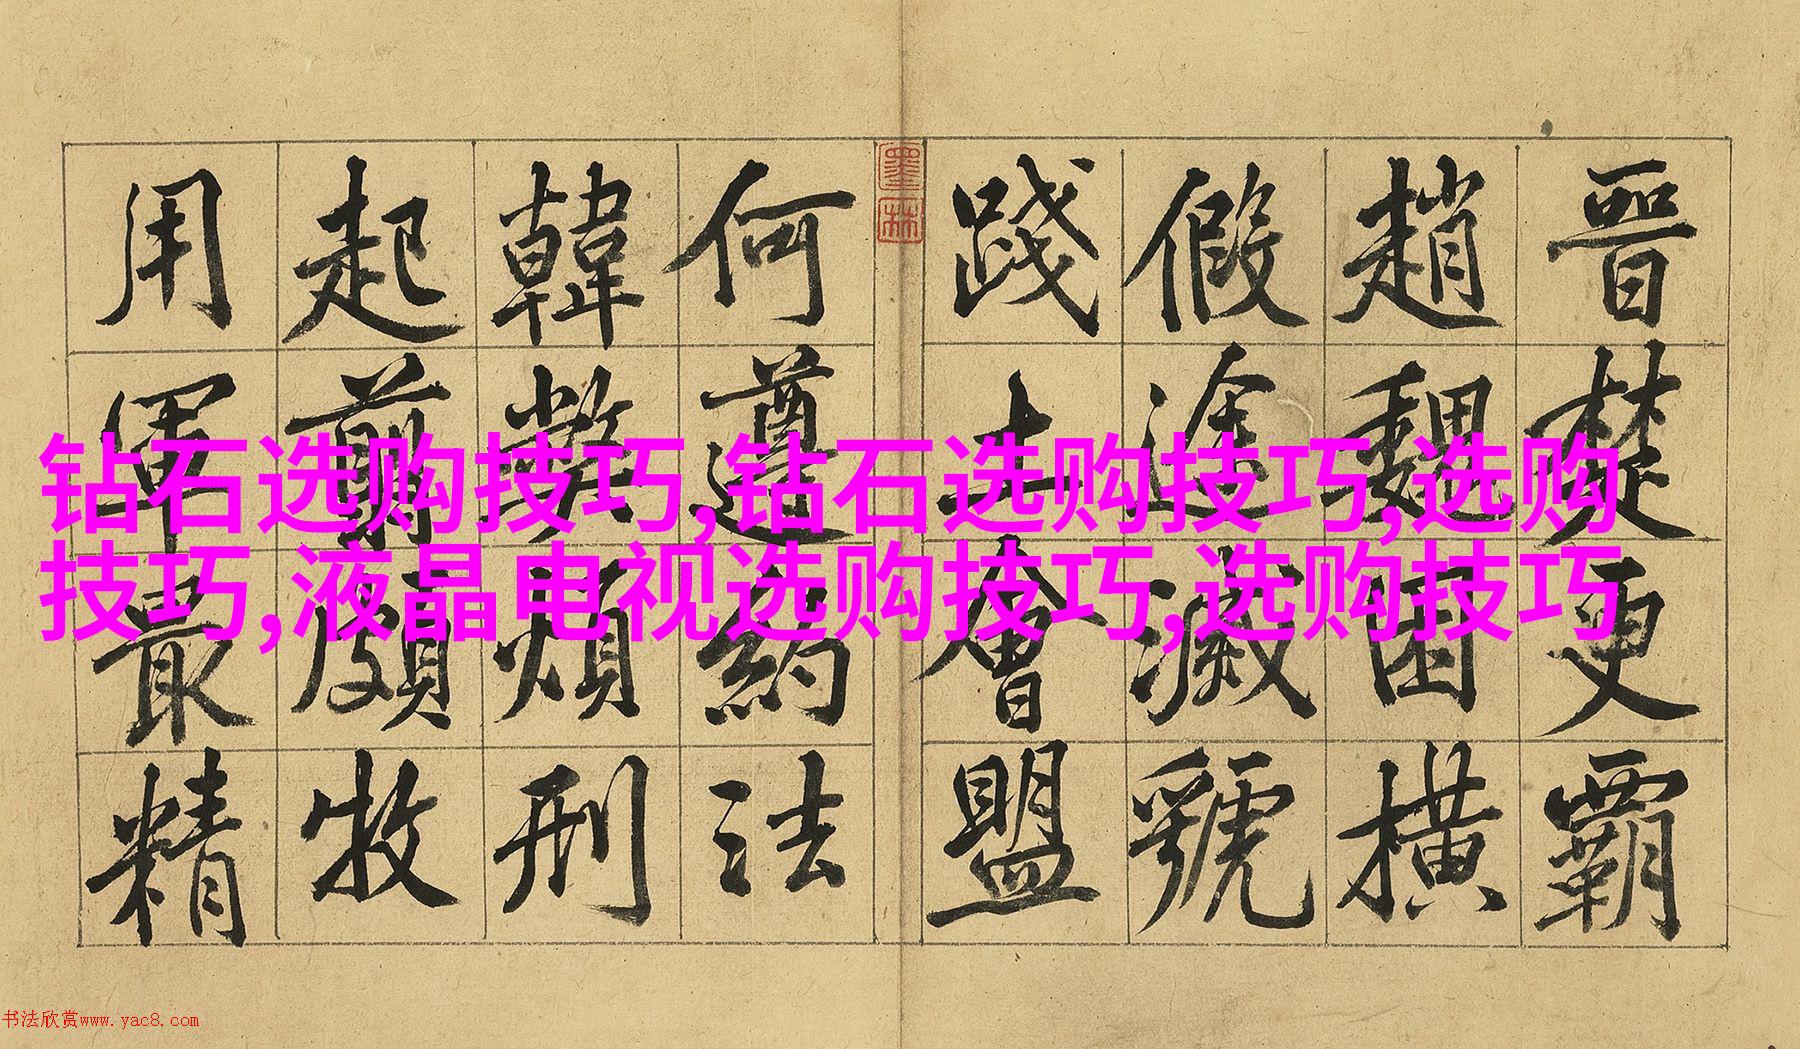 晉楚更霸
趙魏困橫
假途滅虢
踐土會盟
何遵約法
韓弊煩刑
起翦頗牧
用軍最精
墨林
钻石选购技巧,钻石选购技巧,选购
技巧,液晶电视选购技巧,选购技巧
书法欣赏www.yac8.com